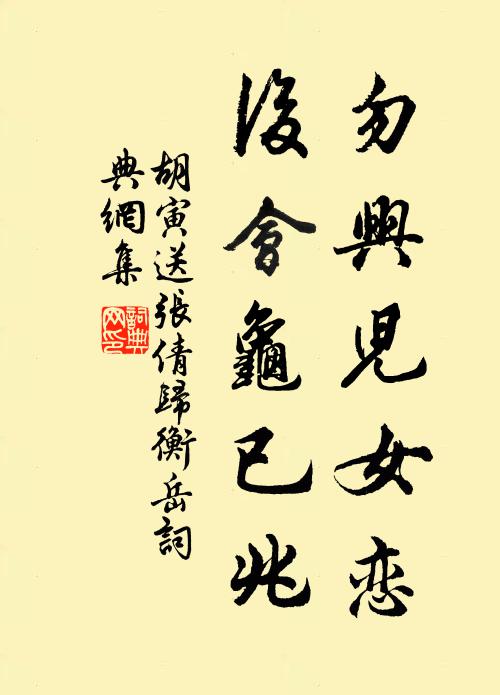 勿興兒女恋
後會龜已兆
胡寅送張倩歸衡岳詞
典網集
詞典网印